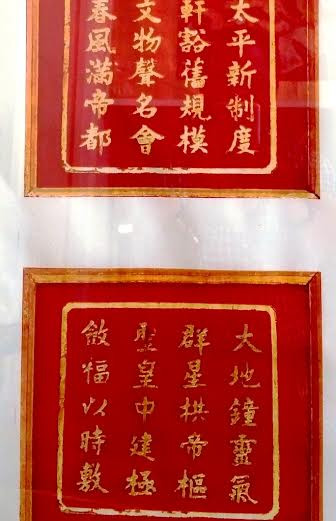 太平新制度
軒豁舊規模
文物聲名會
春風滿帝都
大地鐘靈氣
群星拱帝樞
聖皇中建極
斂福以時敷